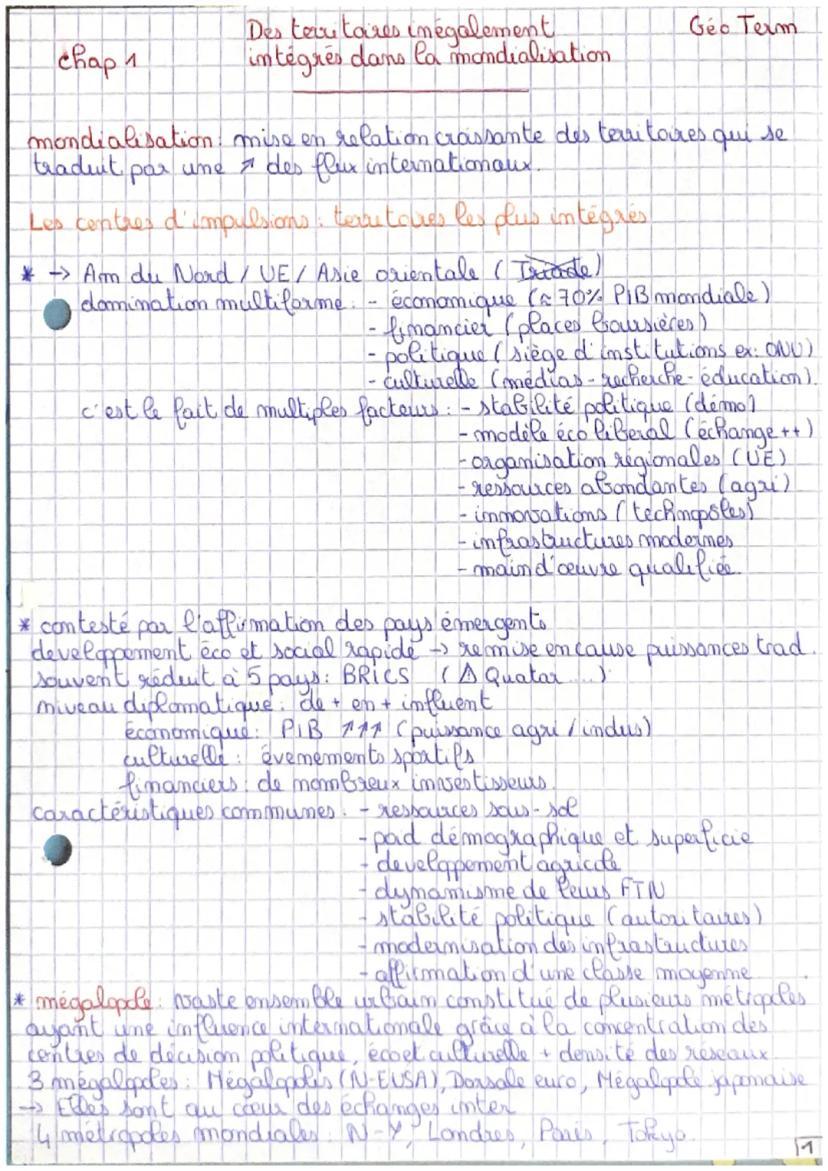 Des territoires inégalement
Géo Term
Chap 1
intégrés dans la mondialisation
mondialisation : mise en relation croissante des territoires qui se
traduit par une ↗ des flux internationaux.
Les centres d'impulsions : territoires les plus intégrés
* → Am du Nord / UE / Asie orientale (Triade)
domination multiforme : - économique (≈ 70% PIB mondiale)
- financier (places boursières)
- politique (siège d'institutions ex: ONU)
- culturelle (médias - recherche - éducation).
c'est le fait de multiples facteurs : - stabilité politique (démo)
- modèle éco libéral (échange ++)
- organisation régionales (UE)
- ressources abondantes (agri)
- innovations (technopôles)
- infrastructures modernes
- main d'œuvre qualifiée.
* contesté par l'affirmation des pays émergents
developpement éco et social rapide → remise en cause puissances trad.
souvent réduit à 5 pays : BRICS (⚠ Quatar ...)
niveau diplomatique : de + en + influent
économique : PIB ↗↗↗ (puissance agri / indus)
culturelle : évenements sportifs
financiers : de nombreux investisseurs.
caractéristiques communes : - ressources sous-sol
- poid démographique et superficie
- developpement agricole
- dynamisme de leurs FTN
- stabilité politique (autoritaires)
- modernisation des infrastructures
- affirmation d'une classe moyenne
* mégalopole : vaste ensemble urbain constitué de plusieurs métropoles
ayant une influence internationale grâce à la concentration des
centres de décision politique, éco et culturelle + densité des réseaux
3 mégalopoles : Mégalopolis (N-E USA), Dorsale euro, Mégalopole japonaise
→ Elles sont au cœur des échanges inter
4 métropoles mondiales : N-Y, Londres, Paris, Tokyo.
1